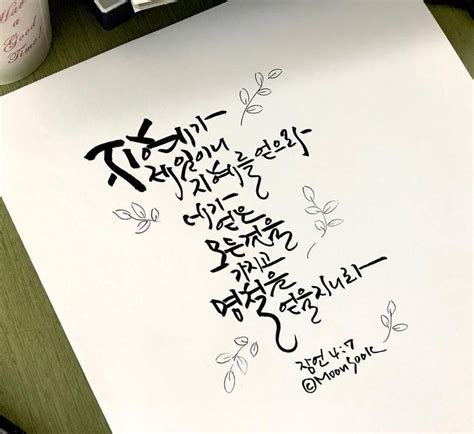 Have
a
Good
Time!
지혜가
제일이니
지혜를 얻으라
네가
얻은
모든것을
가지고
명철을 얻을지니라
잠언 4:7
©Moonsook